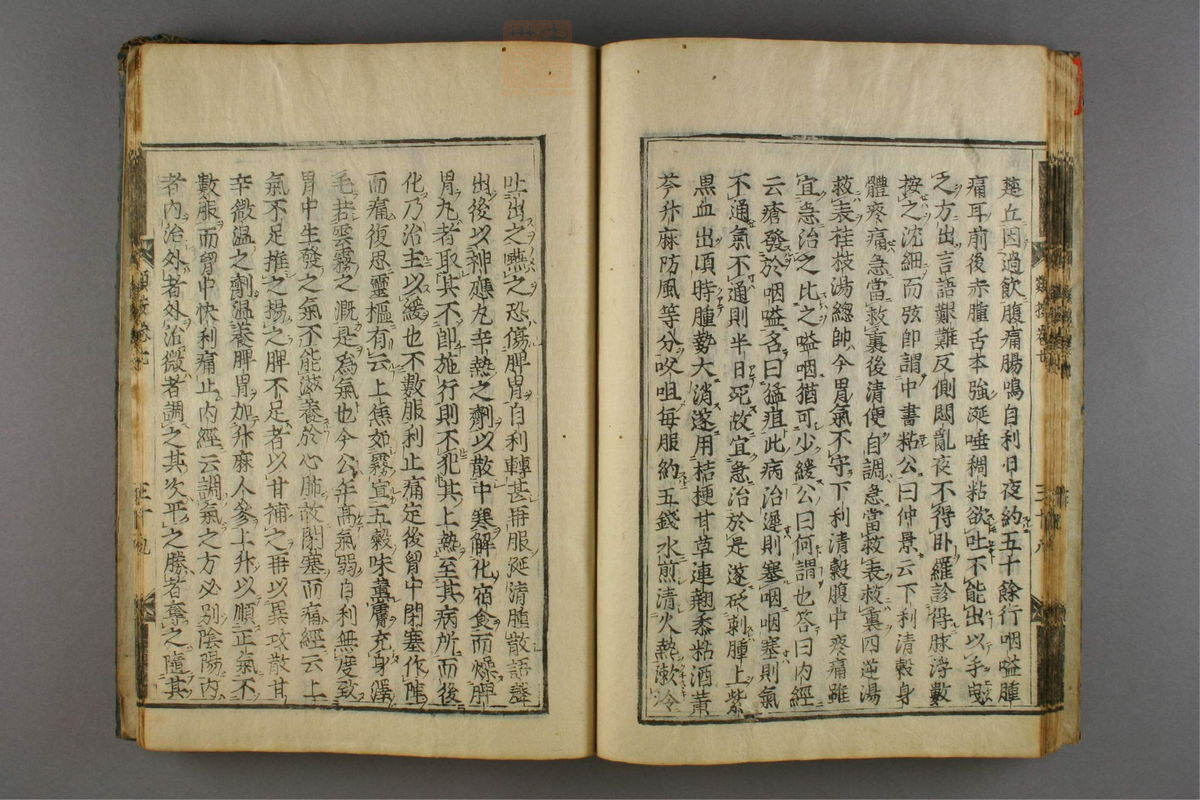 莚丘因過飲腹痛腸鳴自利日夜約五十餘行咽嗌腫
痛耳前後赤腫舌本強涎唾稠粘欲吐不能出以手曳
之方出言語艱難反側悶亂夜不得臥羅診得脉浮數
按之沈細而弦即謂中書粘公曰仲景云下利清穀身
體疼痛急當救裏後清便自調急當救表救裏四逆湯
救表桂枝湯總帥今胃氣不守下利清穀腹中疼痛雖
宜急治之比之嗌咽猶可少緩公曰何謂也答曰内經
云瘡發於咽嗌名曰猛疽此病治遲則塞咽咽塞則氣
不通氣不通則半日死故宜急治於是遂砭刺腫上紫
黒血出頃時腫勢大消遂用桔梗甘草連翹黍粘酒黄
芩升麻防風等分㕮咀毎服約五錢水煎清火熱漱冷
吐出之嚥之恐傷脾胃自利轉甚再服涎清腫散語聲
出後以神應丸辛熱之劑以散中寒解化宿食而燥脾
胃丸者取其不即施行則不犯其上熱至其病所而後
化乃治主以緩也不數服利止痛定後胷中閉塞作陣
而痛復思靈樞有云上焦如霧宣五穀味熏膚充身澤
毛若雲霧之溉是爲氣也今公年高氣弱自利無度致
胃中生發之氣不能滋養於心肺故閉塞而痛經云上
氣不足推之揚之脾不足者以甘補之再以異攻散甘
辛微温之劑温養脾胃加升麻人參上升以順正氣不
數服而胷中快利痛止内經云調氣之方必別陰陽内
者内治外者外治微者調之其次平之勝者奪之隨其